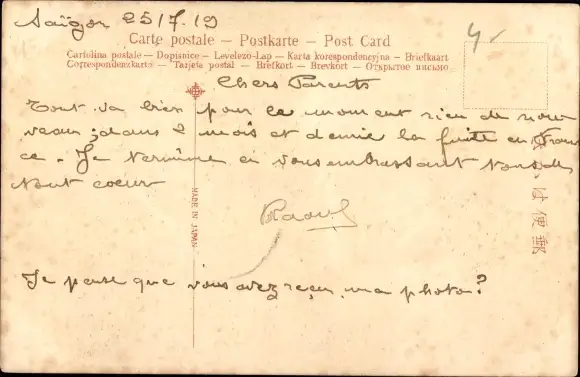 Saïgon 25/7.19
Carte postale — Postkarte — Post Card
Cartolina postale — Dopisnice — Levelező-Lap — Karta korespondencyjna — Briefkaart
Correspondenzkarte — Tarjeta postal — Brefkort — Brevkort — Открытое письмо
Chers Parents
Tout va bien pour le moment rien de nou
veau ; dans 2 mois et demie la fuite en Fran
ce. Je termine en vous embrassant tous de
tout coeur
Raoul
MADE IN JAPAN
Je pense que vous avez reçu ma photo?
は便郵